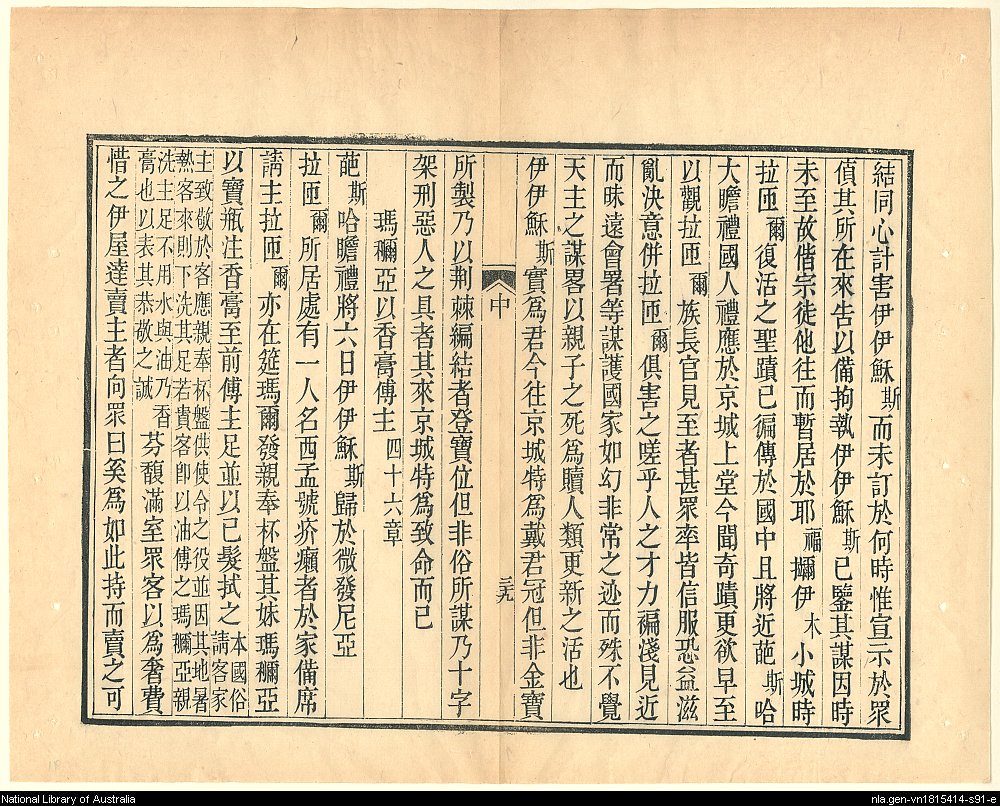 結同心計害伊伊穌斯而未訂於何時惟宣示於眾
偵其所在來告以備拘執伊伊穌斯已鑒其謀因時
未至故偕宗徒他往而暫居於耶福擟伊木小城時
拉匝爾復活之聖蹟已徧傳於國中且將近葩斯哈
大瞻禮國人禮應於京城上堂今聞奇蹟更欲早至
以觀拉匝爾族長官見至者甚眾率皆信服恐益滋
亂決意併拉匝爾俱害之嗟乎人之才力褊淺見近
而昧遠會署等謀護國家如幻非常之迹而殊不覺
天主之謀畧以親子之死為贖人類更新之活也
伊伊穌斯實為君今往京城特為戴君冠但非金寶
中
三九
所製乃以荆棘編結者登寶位但非俗所謀乃十字
架刑惡人之具者其來京城特為致命而已
瑪穪亞以香膏傅主四十六章
葩斯哈瞻禮將六日伊伊穌斯歸於微發尼亞
拉匝爾所居處有一人名西孟號疥癩者於家備席
請主拉匝爾亦在筵瑪爾發親奉杯盤其妹瑪穪亞
以寶瓶注香膏至前傅主足並以己髮拭之本國俗請客家
主致敬於客應親奉杯盤供使令之役並因其地暑
熱客來則下洗其足若貴客卽以油傅之瑪穪亞親
洗主足不用水與油乃香
膏也以表其恭敬之誠芬馥滿室眾客以為奢費
惜之伊屋達賣主者向眾曰奚為如此持而賣之可
National Library of Australia
nla.gen-vn1815414-s91-e